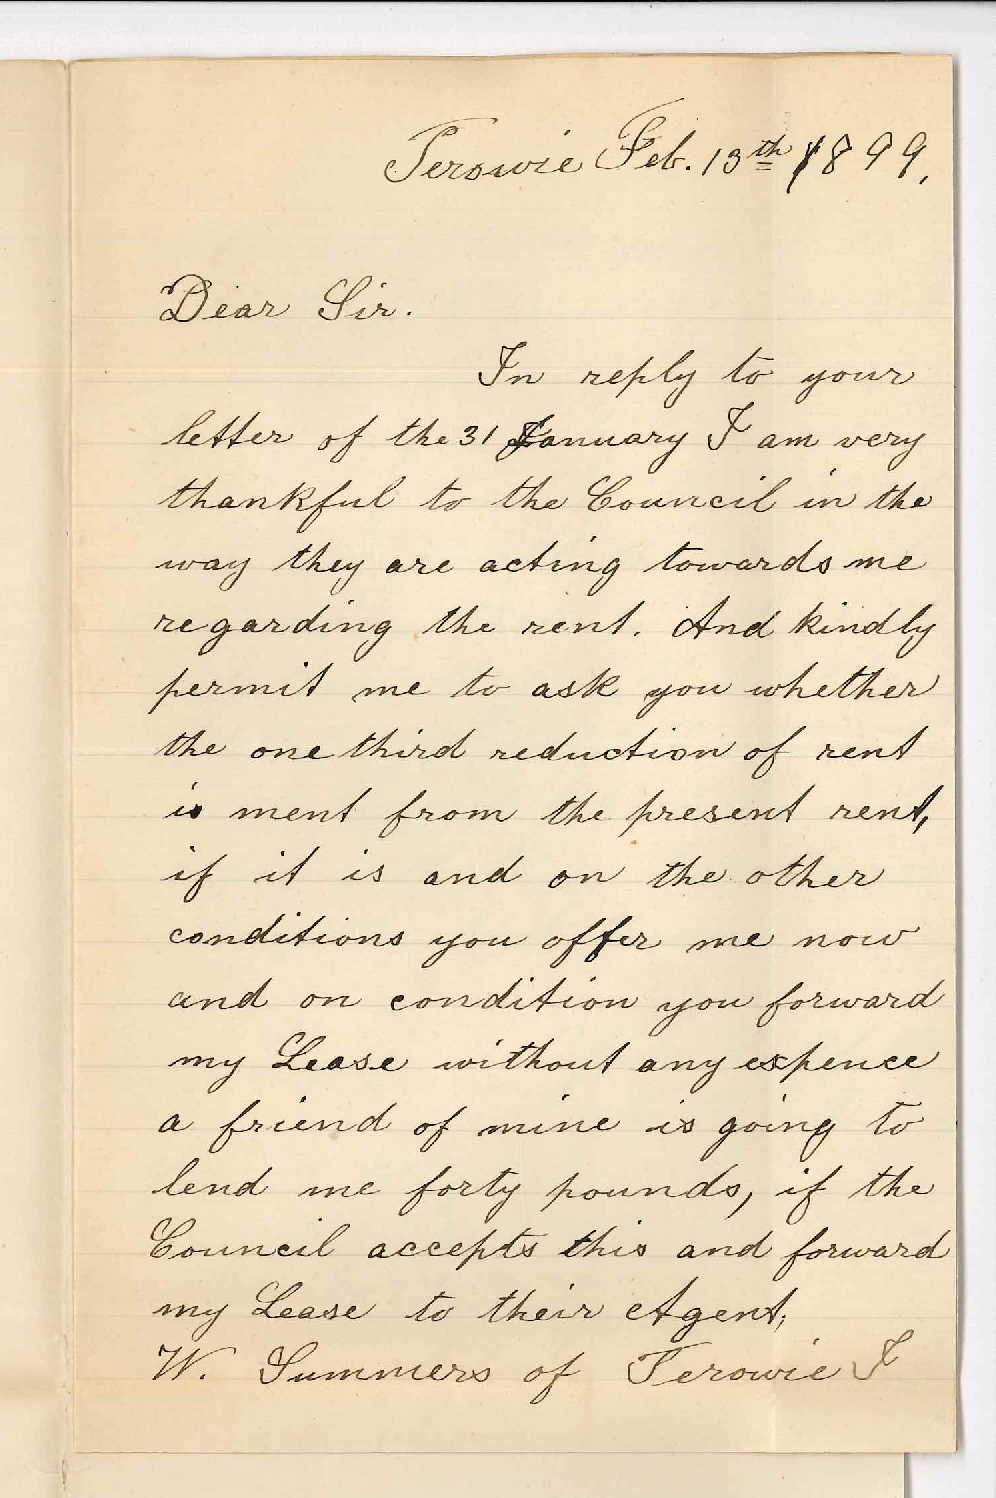 Terowie Feb. 13th 1899.
Dear Sir.
In reply to your
letter of the 31 January I am very
thankful to the Council in the
way they are acting towards me
regarding the rent. And kindly
permit me to ask you whether
the one third reduction of rent
is ment from the present rent,
if it is and on the other
conditions you offer me now
and on condition you forward
my Lease without any expence
a friend of mine is going to
lend me forty pounds, if the
Council accepts this and forward
my Lease to their Agent,
W. Summers of Terowie I